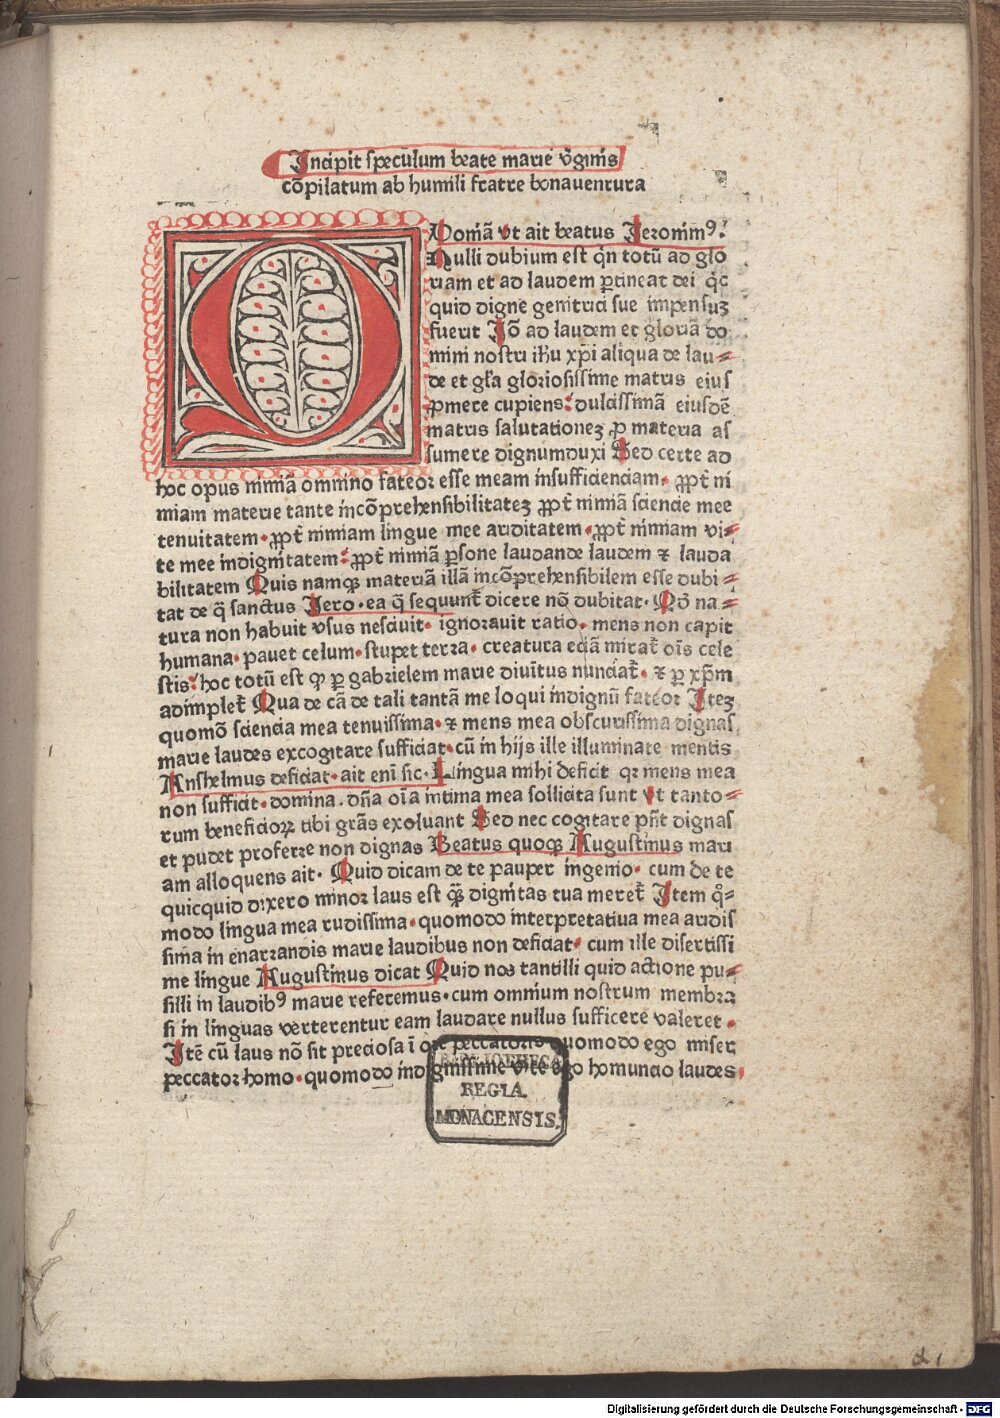 Incipit speculum beate marie v̄ginis
cōpilatum ab humili fratre bonauentura
Qoniā vt ait beatus Ieronim⁹.
Nulli dubium est q̄n totū ad glo
riam et ad laudem ꝑtineat dei q̇c
quid digne genitrici sue impensuꝫ
fuerit Iō ad laudem et gloriā do
mini nostri ih̄u xp̄i aliqua de lau⸗
de et gl̄a gloriosissime matris eius
ꝓmere cupiens: dulcissimā eiusdē
matris salutationeꝫ ꝓ materia as
sumere dignum duxi Sed certe ad
hoc opus nimiā omnino fateor esse meam insufficienciam. ꝓpt̄ ni
miam materie tante incōprehensibilitateꝫ ꝓpt̄ nimiā sciencie mee
tenuitatem. ꝓpt̄ nimiam lingue mee ariditatem. ꝓpt̄ nimiam vi⸗
te mee indignitatem: ꝓpt̄ nimiā ꝑsone laudande laudem ⁊ lauda
bilitatem Quis namqꝫ materiā illā incōprehensibilem esse dubi⸗
tat de q̄ sanctus Iero. ea q̄ sequunt̄ dicere nō dubitat. Qd̄ na⸗
tura non habuit vsus nesciuit. ignorauit ratio. mens non capit
humana. pauet celum. stupet terra. creatura eciā mirat̄ oīs cele
stis: hoc totū est qꝫ ꝑ gabrielem marie diuītus nunciat̄. ⁊ ꝑ xp̄m
adimplet̄ Qua de cā de tali tantā me loqui indignū fateor Iteꝫ
quomō sciencia mea tenuissima. ⁊ mens mea obscurissima dignas
marie laudes excogitare sufficiat. cū in hijs ille illuminate mentis
Anshelmus deficiat. ait enī sic. Lingua mihi deficit qꝛ mens mea
non sufficit. domina. dn̄a oīa intima mea sollicita sunt vt tanto⸗
rum beneficioꝝ tibi grās exoluant Sed nec cogitare pn̄t dignas
et pudet proferre non dignas Beatus quoqꝫ Augustinus mari
am alloquens ait. Quid dicam de te pauper ingenio. cum de te
quicquid dixero minor laus est qꝫ̄ dignitas tua meret̄ Item q̊⸗
modo lingua mea rudissima. quomodo interpretatiua mea aridis
sima in enarrandis marie laudibus non deficiat. cum ille disertissi
me lingue Augustinus dicat Quid nos tantilli quid actione pu⸗
silli in laudib⁹ marie referemus. cum omnium nostrum membra
si in linguas verterentur eam laudare nullus sufficere valeret.
Itē cū laus nō sit preciosa ī ore peccatoris quomodo ego miser
peccator homo. quomodo indignissime vite ego homuncio laudes.
BIBLIOTHECA
REGIA
MONACENSIS.
Digitalisierung gefördert durch die Deutsche Forschungsgemeinschaft - DFG